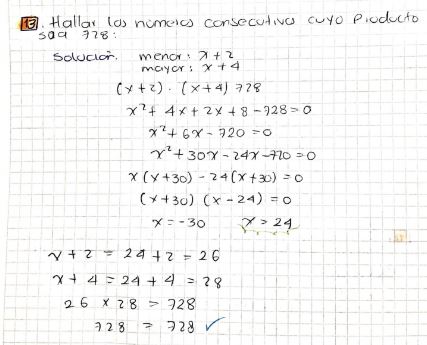 13. Hallar los números consecutivos cuyo Producto
sea 728:
Solución. menor: x+2
mayor: x+4
(x+2) · (x+4) 728
x² + 4x + 2x + 8 - 728 = 0
x² + 6x - 720 = 0
x² + 30x - 24x - 720 = 0
x (x+30) - 24 (x+30) = 0
(x+30) (x-24) = 0
x = -30 x = 24
x + 2 = 24 + 2 = 26
x + 4 = 24 + 4 = 28
26 x 28 = 728
728 = 728 ✓